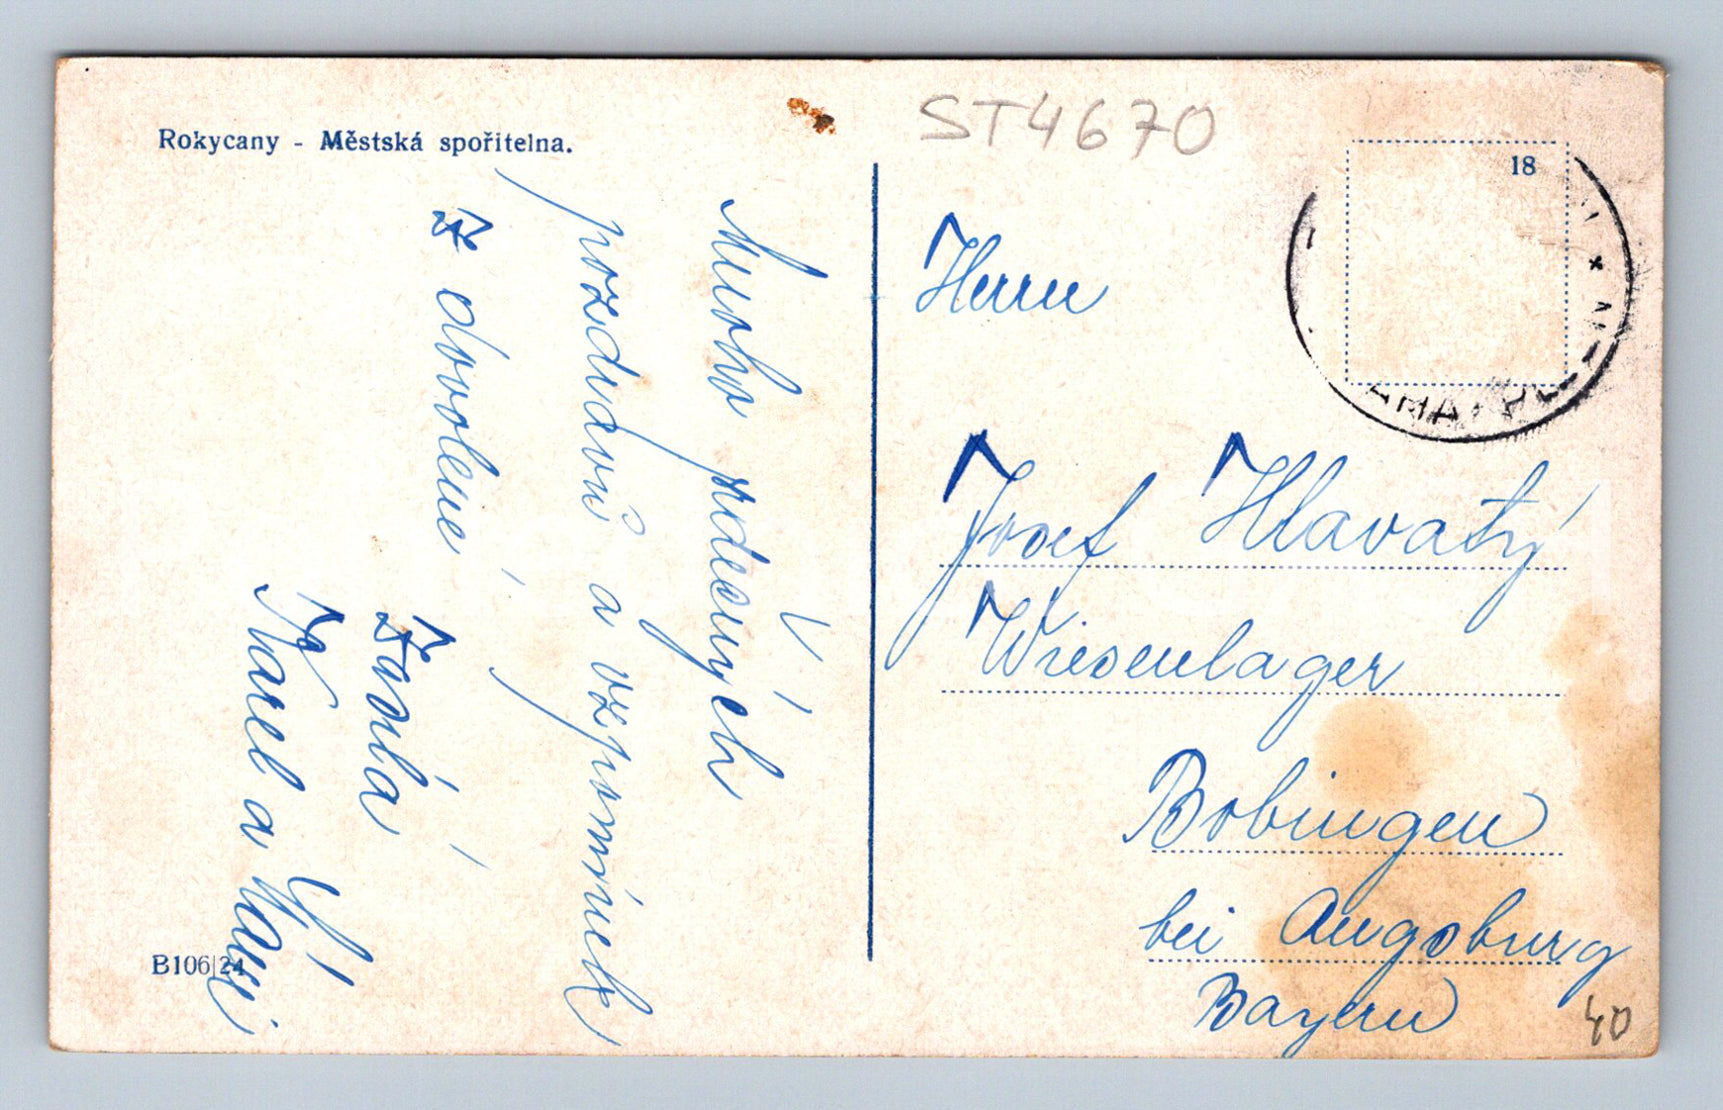 Rokycany - Městská spořitelna.
ST4670
18
Mnoho srdečných
pozdravů a vzpomínek
z dovolené
Karel a
Herrn
Josef Hlavatý
Wiesenlager
Bobingen
bei Augsburg
Bayern
B106|24
40